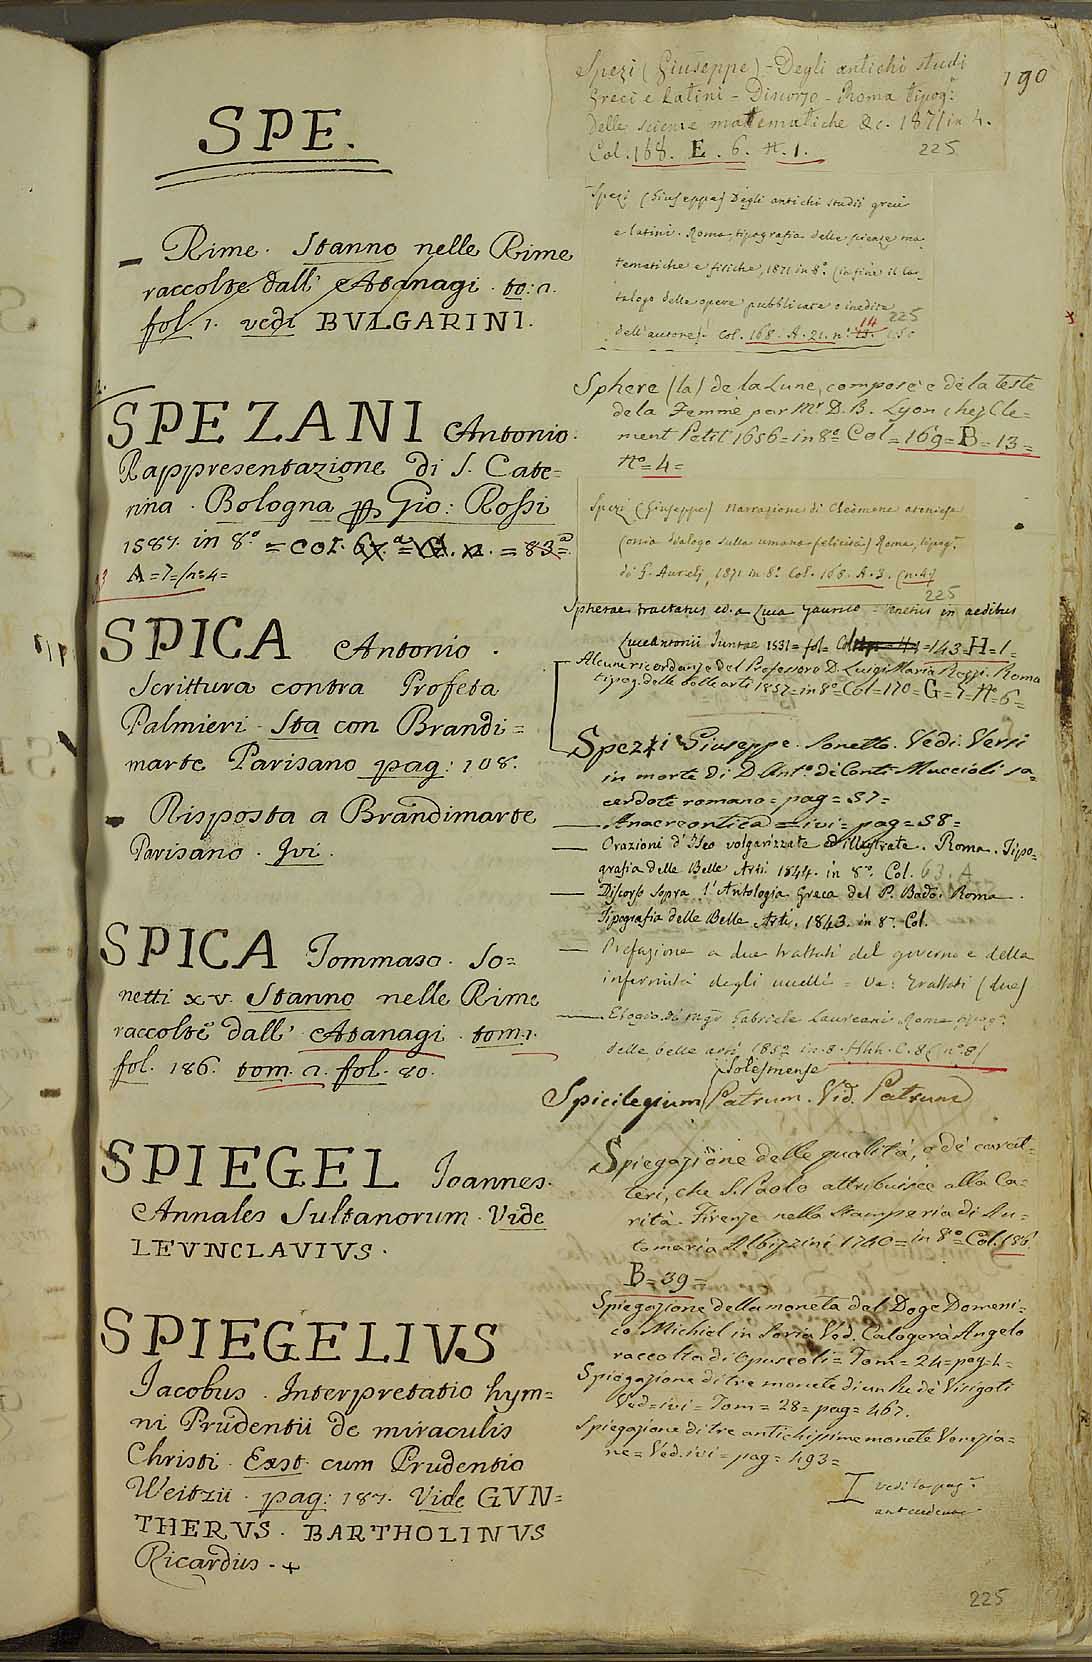 SPE.
– Rime. Stanno nelle Rime
raccolte dall' Atanagi. to: 2.
fol. 1. vedi BVLGARINI.
SPEZANI Antonio.
Rappresentazione di S. Cate=
rina. Bologna Gio: Rossi
1587. in 8.º = COL. = 83=
A=7=/nº4=
SPICA Antonio.
Scrittura contra Profeta
Palmieri. Sta con Brandi=
marte Parisano pag: 108.
– Risposta a Brandimarte
Parisano. Ivi.
SPICA Tommaso. So=
netti xv. Stanno nelle Rime
raccolte dall' Atanagi. tom. 1.
fol. 186. tom. 2. fol. 80.
SPIEGEL Ioannes.
Annales Sultanorum. Vide
LEVNCLAVIVS.
SPIEGELIVS
Iacobus. Interpretatio hym=
ni Prudentii de miraculis
Christi. Exst. cum Prudentio
Weitzii. pag: 187. Vide GVN=
THERVS. BARTHOLINVS
Ricardus. +
190
Spezi (Giuseppe) – Degli antichi studi
Greci e Latini – Discorso – Roma tipog.ª
delle scienze matematiche &c. 1871 in 4.
Col. 168. E. 6. #. 1. 225
Spezi (Giuseppe) Degli antichi studii greci
e latini. Roma, tipografia delle scienze ma
tematiche e fisiche, 1871 in 8º. (infine il ca-
talogo delle opere pubblicate o inedite
dell'autore). Col. 168. A. 21. nº 14 225
Sphere (la) de la Lune, composée de la teste
de la Femme par Mr D. B. Lyon chez Cle=
ment Petit 1656=in 8º Col=169=B=13=
Nº=4=
Spezi (Giuseppe) Narrazione di Cleomene ateniese
(ossia dialogo sulla umana felicità) Roma, tipog.ª
di G. Aurelj, 1871 in 8º Col. 168. A. 3. (n. 4)
225
Spherae tractatus ed. a Luca Gaurico = Venetiis in aedibus
Luceantonii Juntae 1531=fol= Col =143=H=1=
Alcune ricordanze del Professore D. Luigi Maria Rezzi. Roma
tipog. delle belle arti 1857=in 8º=Col=170=G=7=Nº=6=
Spezi Giuseppe. Sonetto. Vedi. Versi
in morte di D. Antº. de' Conti Muccioli sa=
cerdote romano=pag=57=
— Anacreontica=ivi=pag=58=
— Orazioni d'Iseo volgarizzate ed illustrate. Roma. Tipo=
grafia delle Belle Arti. 1844. in 8º. Col. 63. A
— Discorso sopra l'Antologia Greca del P. Roma.
Tipografia delle Belle Arti. 1843. in 8º. Col.
— Prefazione a due trattati del governo e delle
infermità degli uccelli = Ve: Trattati (due)
— Elogio di Mgr Gabriele Laureani Roma tipogª
delle belle arti 1852 in 8. Hhh. C. 8 (nº 8)
Solesmense
Spicilegium Patrum. Vid. Patrum
Spiegazione delle qualità, e de' carat=
teri, che S. Paolo attribuisce alla Ca=
rità. Firenze nella Stamperia di An=
tomaria Albizzini 1740=in 8º=Col. 186.
B=39=
Spiegazione della moneta del Doge Domeni=
co Michiel in Soria Ved. Calogerà Angelo
raccolta di Opuscoli=Tom=24=pag=1=
Spiegazione di tre monete di un Re de' Visigoti
Ved=ivi=Tom=28=pag=467.
Spiegazione di tre antichissime monete Venezia=
ne=Ved. ivi=pag=493=
I vedi la pag.ª
antecedente
225